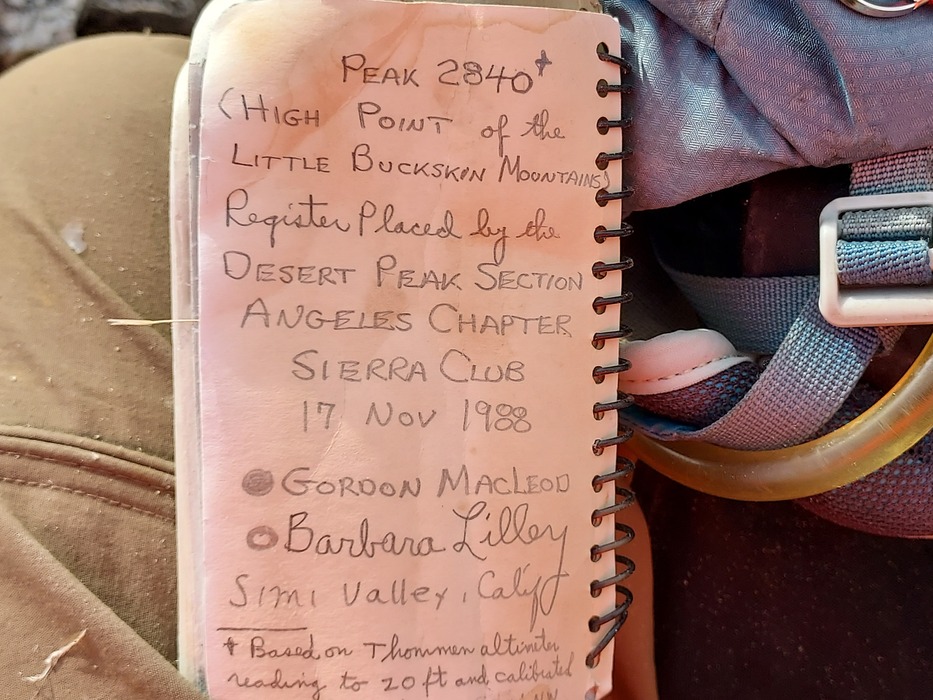 PEAK 2840†
(HIGH POINT of the
LITTLE BUCKSKIN MOUNTAINS)
Register Placed by the
DESERT PEAK SECTION
ANGELES CHAPTER
SIERRA CLUB
17 NOV 1988
GORDON MACLEOD
Barbara Lilley
Simi Valley, Calif
† Based on Thommen altimeter
reading to 20 ft and calibrated